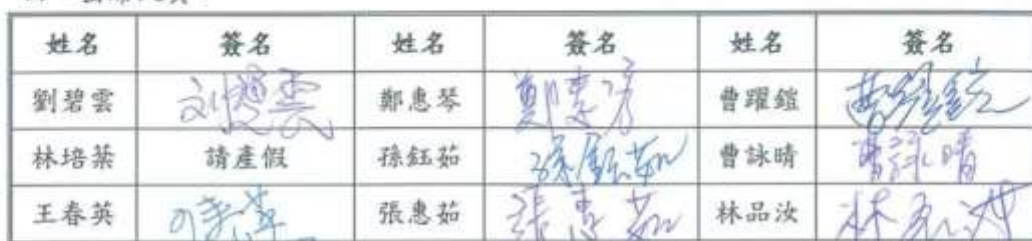 姓名 簽名 姓名 簽名 姓名 簽名
劉碧雲 刘碧雲 鄭惠琴 鄭惠琴 曹躍鎧 曹躍鎧
林培棻 請產假 孫鈺茹 孫鈺茹 曹詠晴 曹詠晴
王春英 張惠茹 張惠茹 林品汝 林品汝